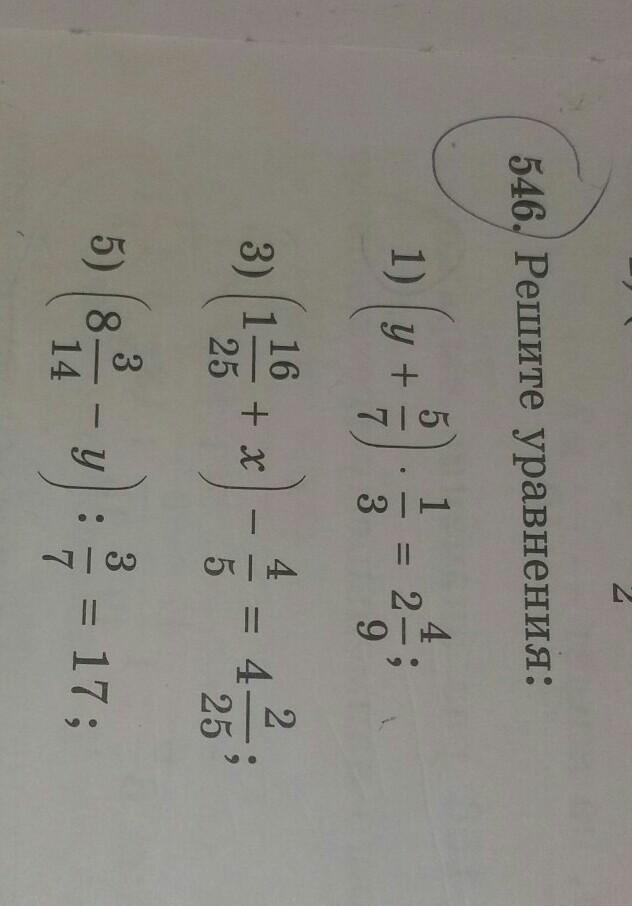 546. Решите уравнения:
1) (y + 5/7) · 1/3 = 2 4/9;
3) (1 16/25 + x) − 4/5 = 4 2/25;
5) (8 3/14 − y) : 3/7 = 17;